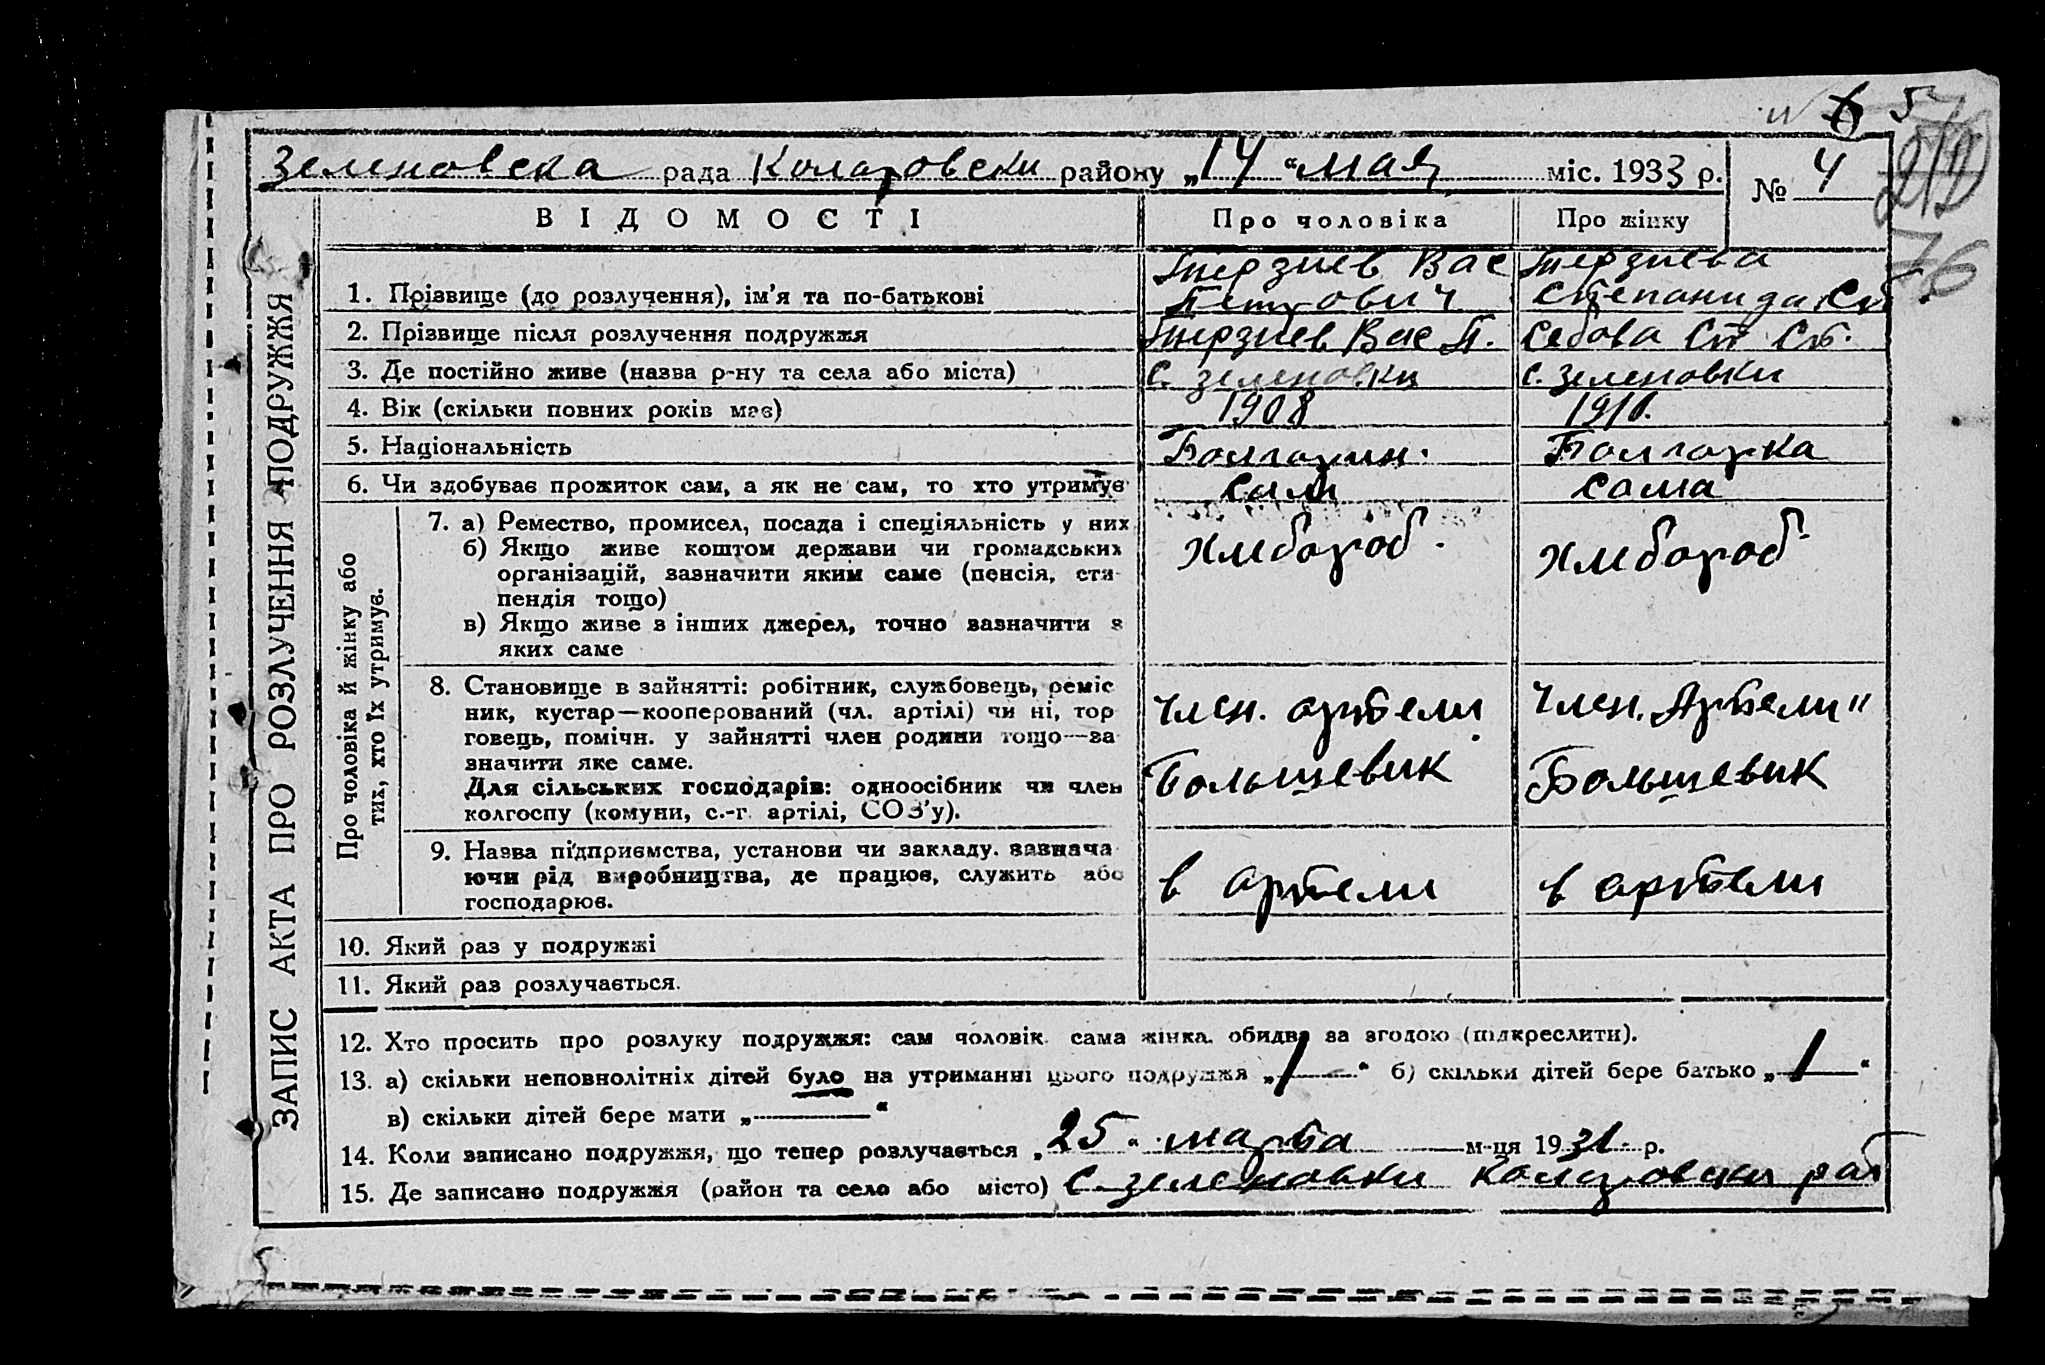 5
Зеленовска рада Коларовски району „14 “ мая міс. 1933 р. № 4
76
ВІДОМОСТІ Про чоловіка Про жінку
Терзиев Вас Терзиева
1. Прізвище (до розлучення), ім’я та по-батькові Петрович Степанида Ст
2. Прізвище після розлучення подружжя Терзиев Вас П. Седова Ст Ст.
3. Де постійно живе (назва р-ну та села або міста) с. Зеленовки с. Зеленовки
4. Вік (скільки повних років має) 1908 1910.
5. Національність Болгарин. Болгарка
6. Чи здобуває прожиток сам, а як не сам, то хто утримує сам сама
7. а) Ремество, промисел, посада і спеціяльність у них хлебороб. хлебороб
б) Якщо живе коштом держави чи громадських
організацій, зазначити яким саме (пенсія, сти-
пендія тощо)
в) Якщо живе з інших джерел, точно зазначити з
яких саме
8. Становище в зайнятті: робітник, службовець, реміс
ник, кустар—кооперований (чл. артілі) чи ні, тор член. артели член. Артели"
говець, помічн. у зайнятті член родини тощо—за
значити яке саме. Большевик Большевик
Для сільських господарів: одноосібник чи член
колгоспу (комуни, с.-г. артілі, СОЗ’у).
9. Назва підприємства, установи чи закладу. зазнача
ючи рід виробництва, де працює, служить або в артели в артели
господарює.
10. Який раз у подружжі
11. Який раз розлучається.
12. Хто просить про розлуку подружжя: сам чоловік. сама жінка. обидва за згодою (підкреслити).
13. а) скільки неповнолітніх дітей було на утриманні цього подружжя „1“ б) скільки дітей бере батько „1“
в) скільки дітей бере мати „—“
14. Коли записано подружжя, що тепер розлучається „25“ марта м-ця 1931 р.
15. Де записано подружжя (район та село або місто) с. Зеленовки Коларовски рай
ЗАПИС АКТА ПРО РОЗЛУЧЕННЯ ПОДРУЖЖЯ
Про чоловіка й жінку або
тих, хто їх утримує.